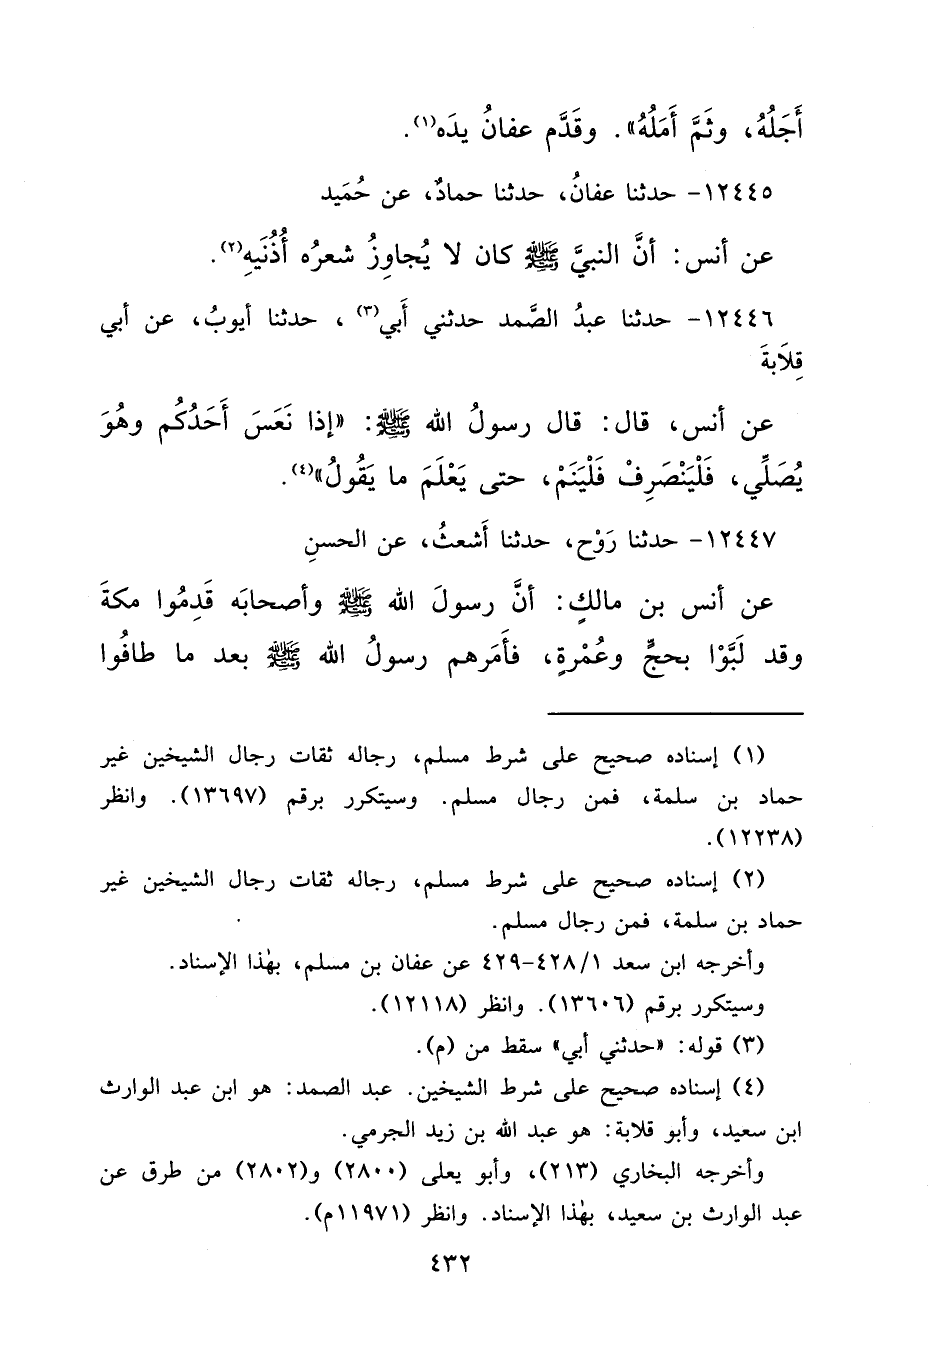 أَجَلُهُ، وثَمَّ أَمَلُهُ». وقَدَّم عفانُ يدَه(١).
١٢٤٤٥- حدثنا عفانُ، حدثنا حمادٌ، عن حُمَيد
عن أنس: أنَّ النبيَّ ﷺ كان لا يُجاوِزُ شعرُه أُذُنَيهِ(٢).
١٢٤٤٦- حدثنا عبدُ الصَّمد حدثني أَبي(٣) ، حدثنا أيوبُ، عن أبي
قِلَابةَ
عن أنس، قال: قال رسولُ الله ﷺ: «إذا نَعَسَ أَحَدُكُم وهُوَ
يُصَلِّي، فَلْيَنْصَرِفْ فَلْيَنَمْ، حتى يَعْلَمَ ما يَقُولُ»(٤).
١٢٤٤٧- حدثنا رَوْح، حدثنا أَشعثُ، عن الحسنِ
عن أنس بن مالكٍ: أنَّ رسولَ الله ﷺ وأصحابَه قَدِمُوا مكةَ
وقد لَبَّوْا بحجٍّ وعُمْرةٍ، فأَمَرهم رسولُ الله ﷺ بعد ما طافُوا
(١) إسناده صحيح على شرط مسلم، رجاله ثقات رجال الشيخين غير
حماد بن سلمة، فمن رجال مسلم. وسيتكرر برقم (١٣٦٩٧). وانظر
(١٢٢٣٨).
(٢) إسناده صحيح على شرط مسلم، رجاله ثقات رجال الشيخين غير
حماد بن سلمة، فمن رجال مسلم.
وأخرجه ابن سعد ٤٢٨/١-٤٢٩ عن عفان بن مسلم، بهٰذا الإسناد.
وسيتكرر برقم (١٣٦٠٦). وانظر (١٢١١٨).
(٣) قوله: «حدثني أبي» سقط من (م).
(٤) إسناده صحيح على شرط الشيخين. عبد الصمد: هو ابن عبد الوارث
ابن سعيد، وأبو قلابة: هو عبد الله بن زيد الجرمي.
وأخرجه البخاري (٢١٣)، وأبو يعلى (٢٨٠٠) و(٢٨٠٢) من طرق عن
عبد الوارث بن سعيد، بهٰذا الإسناد. وانظر (١١٩٧١م).
٤٣٢